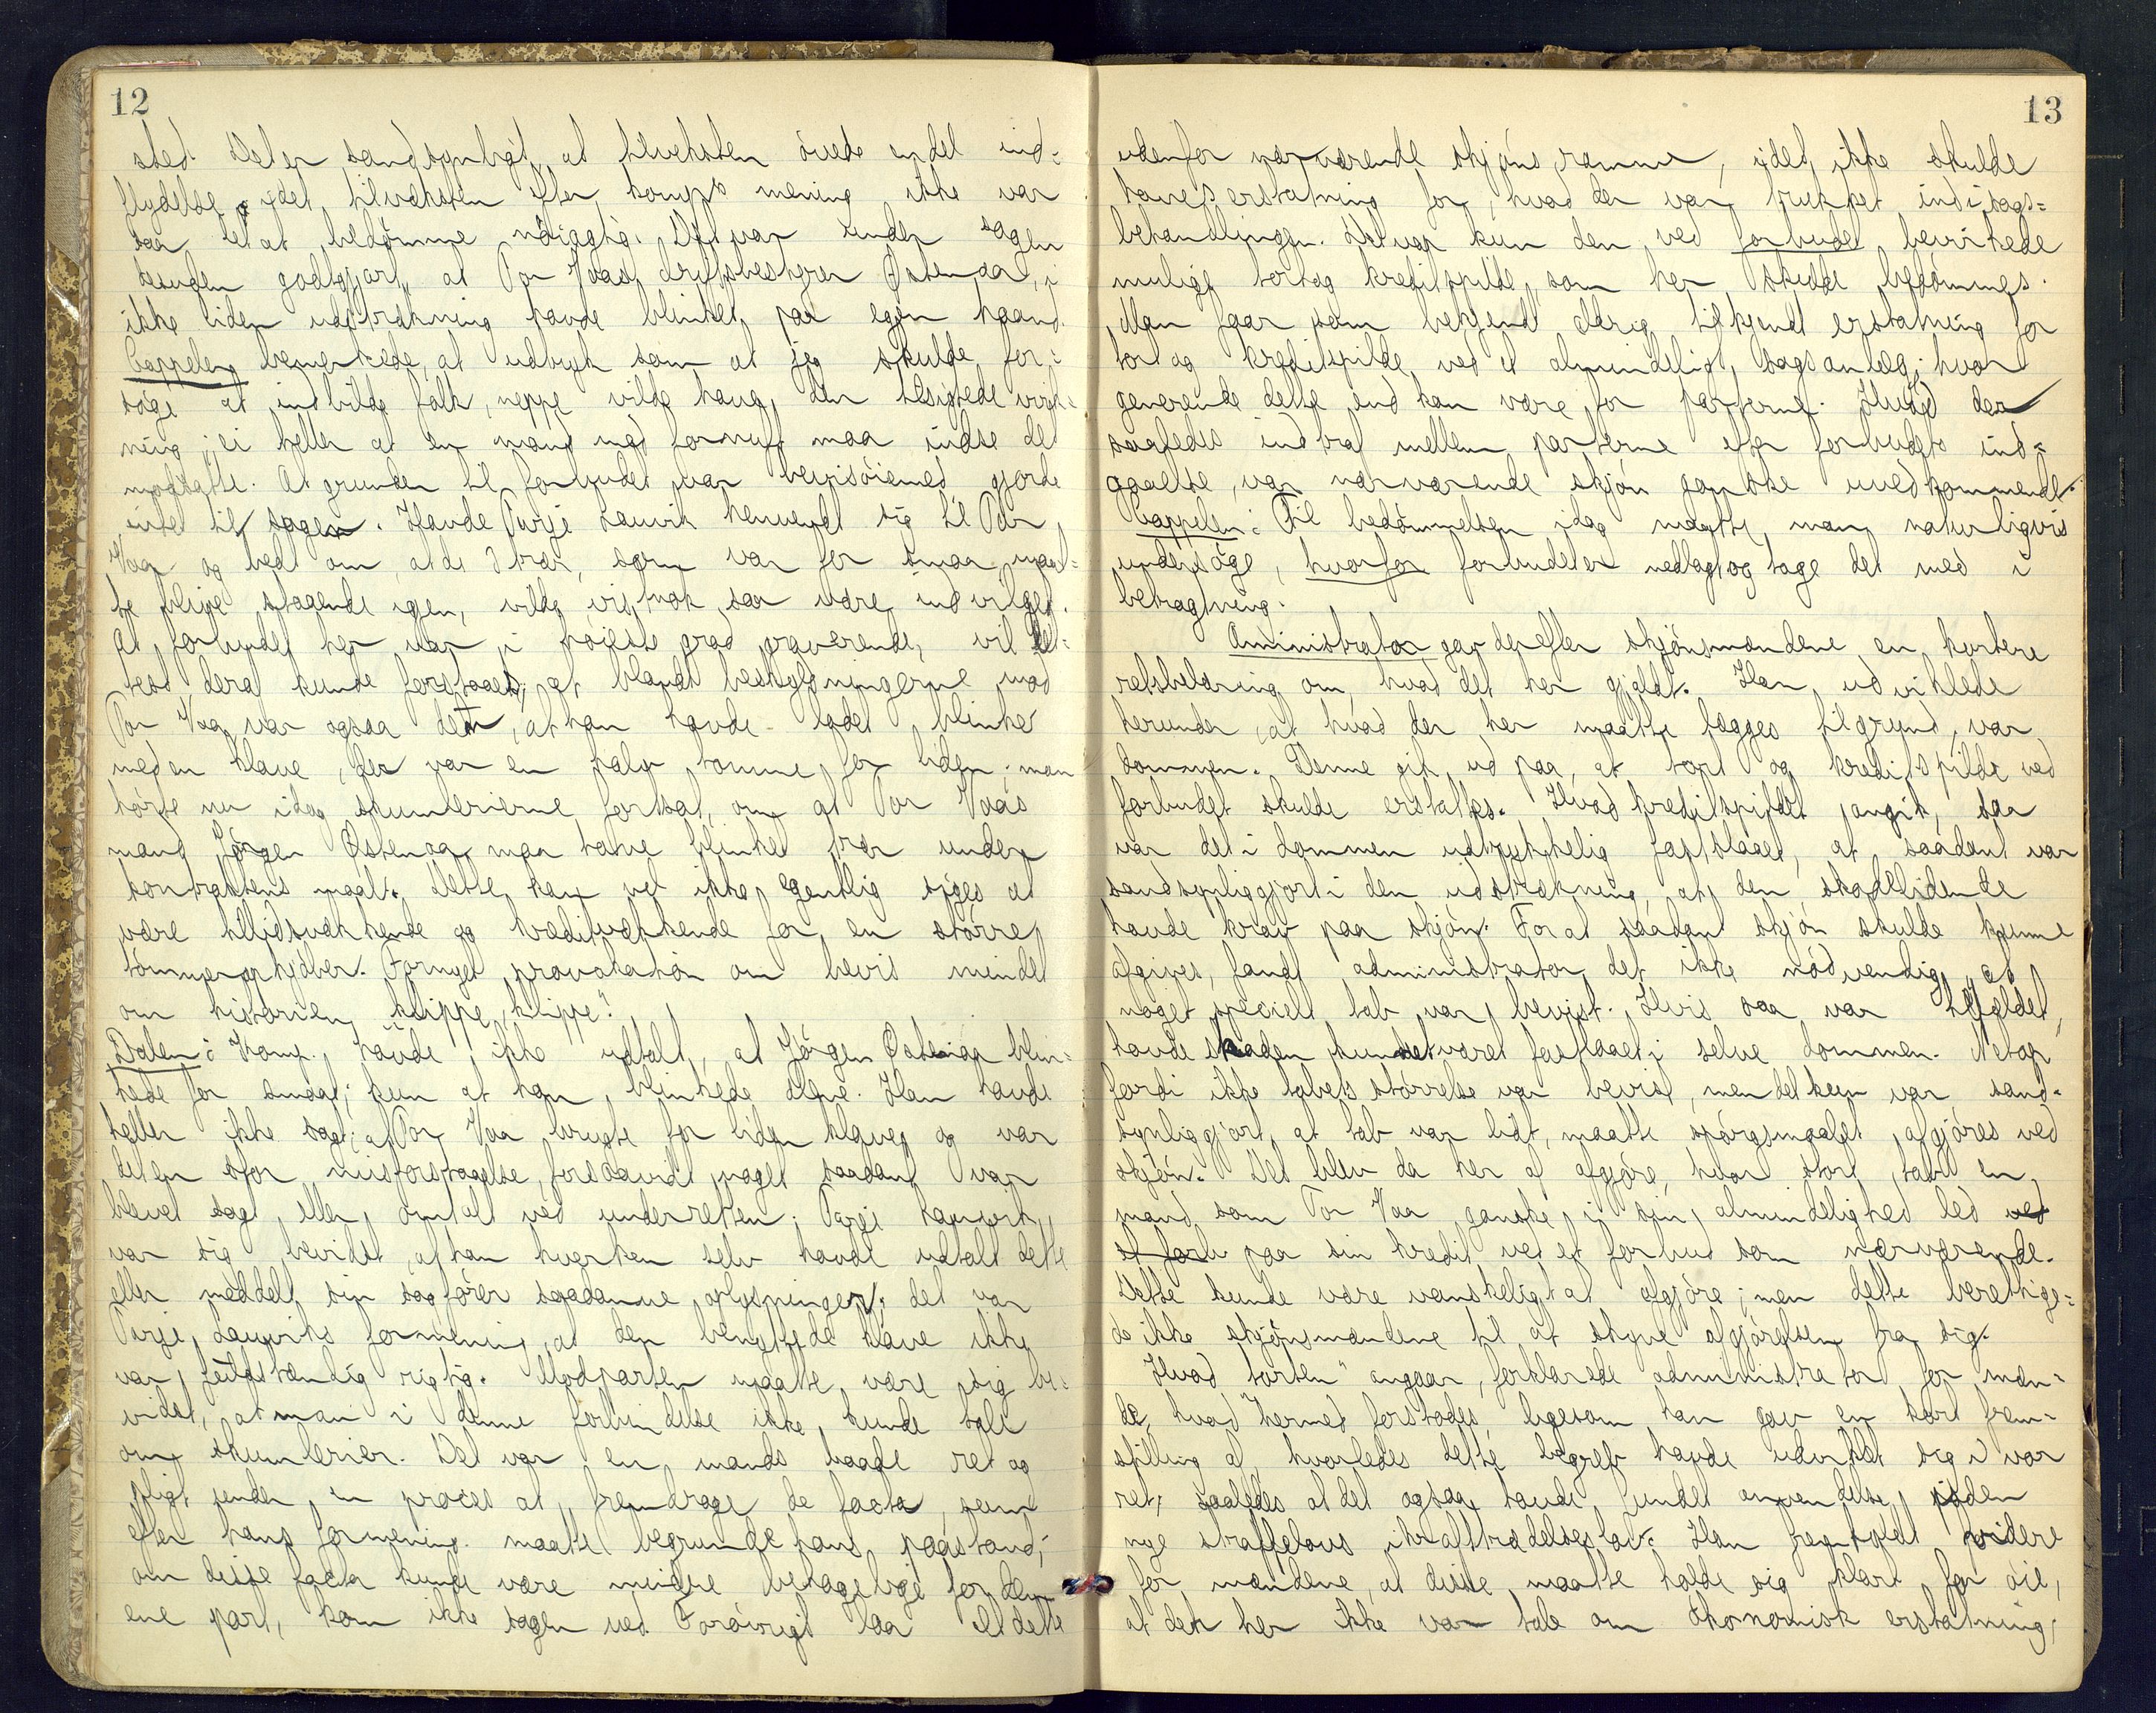 12
sted. Det er sandsynligt, at tilveksten øvede endel ind=
flydelse, idet tilveksten efter komp's mening ikke var
saa let at bedømme nøiagtig. Det var under sagen
desuden godtgjort, at Tor Vaas driftsbestyrer Østenaa, i
ikke liden udstrækning havde blinket paa egen haand.
Cappelen bemerkede, at udtryk som at jeg skulde for=
søge at indbilde folk, neppe vilde have den tilsigtede virk=
ning; ei heller at en mand med fornuft maa indse det
modsatte. At grunden til forbudet var bevisøiemed gjorde
intet til sagen. Havde Tarje Lauvik henvendt sig til Tor
Vaa og bedt om, at de 3 trær, som var for smaa, maat=
te blive staaende igen, vilde vistnok saa være indvilget.
At forbudet her var i høieste grad graverende, vil let=
test deraf kunde forstaaes, at blandt beskyldningerne mod
Tor Vaa var ogsaa den, at han havde ladet blinke
med en klave, der var en halv tomme for liden; man
hørte nu idag skumlerierne fortsat, om at Tor Vaas
mand Jørgen Østenaa maa have blinket trær under
kontraktens maal. Dette kan vel ikke egentlig siges at
være tillidsvækkende og kreditvækkende for en større
tømmeropkjøber. Fornyet provokation om bevis mindet
om historien „klippe, klippe“!
Dalen: Komp. havde ikke udtalt, at Jørgen Østenaa blin=
kede for smaat; kun at han blinkede alene. Han havde
heller ikke sagt, at Tor Vaa brugte for liden klave og var
det en stor misforstaaelse, forsaavidt noget saadant var
blevet sagt eller omtalt ved underretten; Tarje Lauvik
var sig bevidst, at han hverken selv havde udtalt dette
eller meddelt sin sagfører saadanne oplysninger; det var
Tarje Lauviks formening, at den benyttede klave ikke
var fuldstændig rigtig. Modparten maatte være sig be=
vidst, at man i denne forbindelse ikke kunde tale
om skumlerier. Det var en mands baade ret og
pligt under en proces at fremdrage de facta, som
efter hans formening maatte begrunde hans paastand;
om disse facta kunde være mindre behagelige for den
ene part, kom ikke sagen ved. Forøvrigt laa alt dette
13
udenfor nærværende skjøns ramme, idet ikke skulde
haves erstatning for, hvad der var trukket ind i sags=
behandlingen. Det var kun den ved forbudet bevirkede
mulige tort og kreditspilde, som her skulde bedømmes.
Man faar som bekjendt aldrig tilkjendt erstatning for
tort og kreditspilde ved et almindeligt sagsanlæg; hvor
generende dette end kan være for parterne. Hvad der
saaledes indtraf mellem parterne efter forbudets ind=
gaaelse, var nærværende skjøn ganske uvedkommende.
Cappelen: Til bedømmelsen idag maatte man naturligvis
undersøge, hvorfor forbudet er nedlagt og tage det med i
betragtning.
Aministrator gav derefter skjønsmændene en kortere
retsbelæring om, hvad det her gjaldt. Han udviklede
herunder, at hvad der her maatte lægges til grund, var
dommen. Denne gik ud paa, at tort og kreditspilde ved
forbudet skulde erstattes. Hvad kreditspildet angik, saa
var det i dommen udtrykkelig fastslaaet, at saadant var
sandsynliggjort i den udstrækning, at den skadelidende
havde krav paa skjøn. For at saadant skjøn skulde kunne
afgives, fandt administrator det ikke nødvendig, at
noget specielt tab var bevist. Hvis saa var tilfældet,
havde skaden kundet været fastslaaet i selve dommen. Netop
fordi ikke tabets størrelse var bevist, men det kun var sand=
synliggjort, at tab var lidt, maatte spørgsmaalet afgjøres ved
skjøn. Det blev da her at afgjøre, hvor stort tab en
mand som Tor Vaa ganske i sin almindelighed led ved
et forb paa sin kredit ved et forbud som nærværende.
Dette kunde være vanskeligt at afgjøre; men dette berettige=
de ikke skjønsmændene til at skyve afgjørelsen fra sig.
Hvad „torten“ angaar, forklarede administrator for mæn=
de, hvad hermed forstodes, ligesom han gav en kort frem=
stilling af, hvorledes dette begreb havde udviklet sig i vor
ret, saaledes at det ogsaa havde fundet anvendelse i den
nye straffelovs ikrafttrædelseslov. Han fremholdt videre
for mændene, at disse maatte holde sig klart for øie,
at der her ikke var tale om økonomisk erstatning,